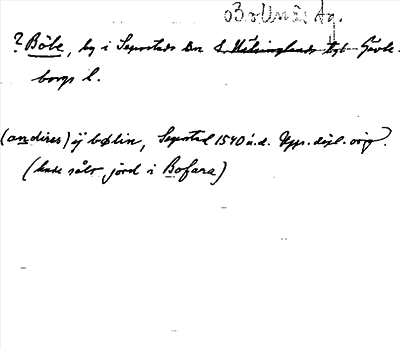 Bollnäs tg.
? Böle, by i Segerstads sn S. Hälsinglands dgb. Gävle-
borgs l.
(andires) ij bølin, Segerstad 1540 u.d. Upps. dipl. orig?
(hade sålt jord i Bofara)